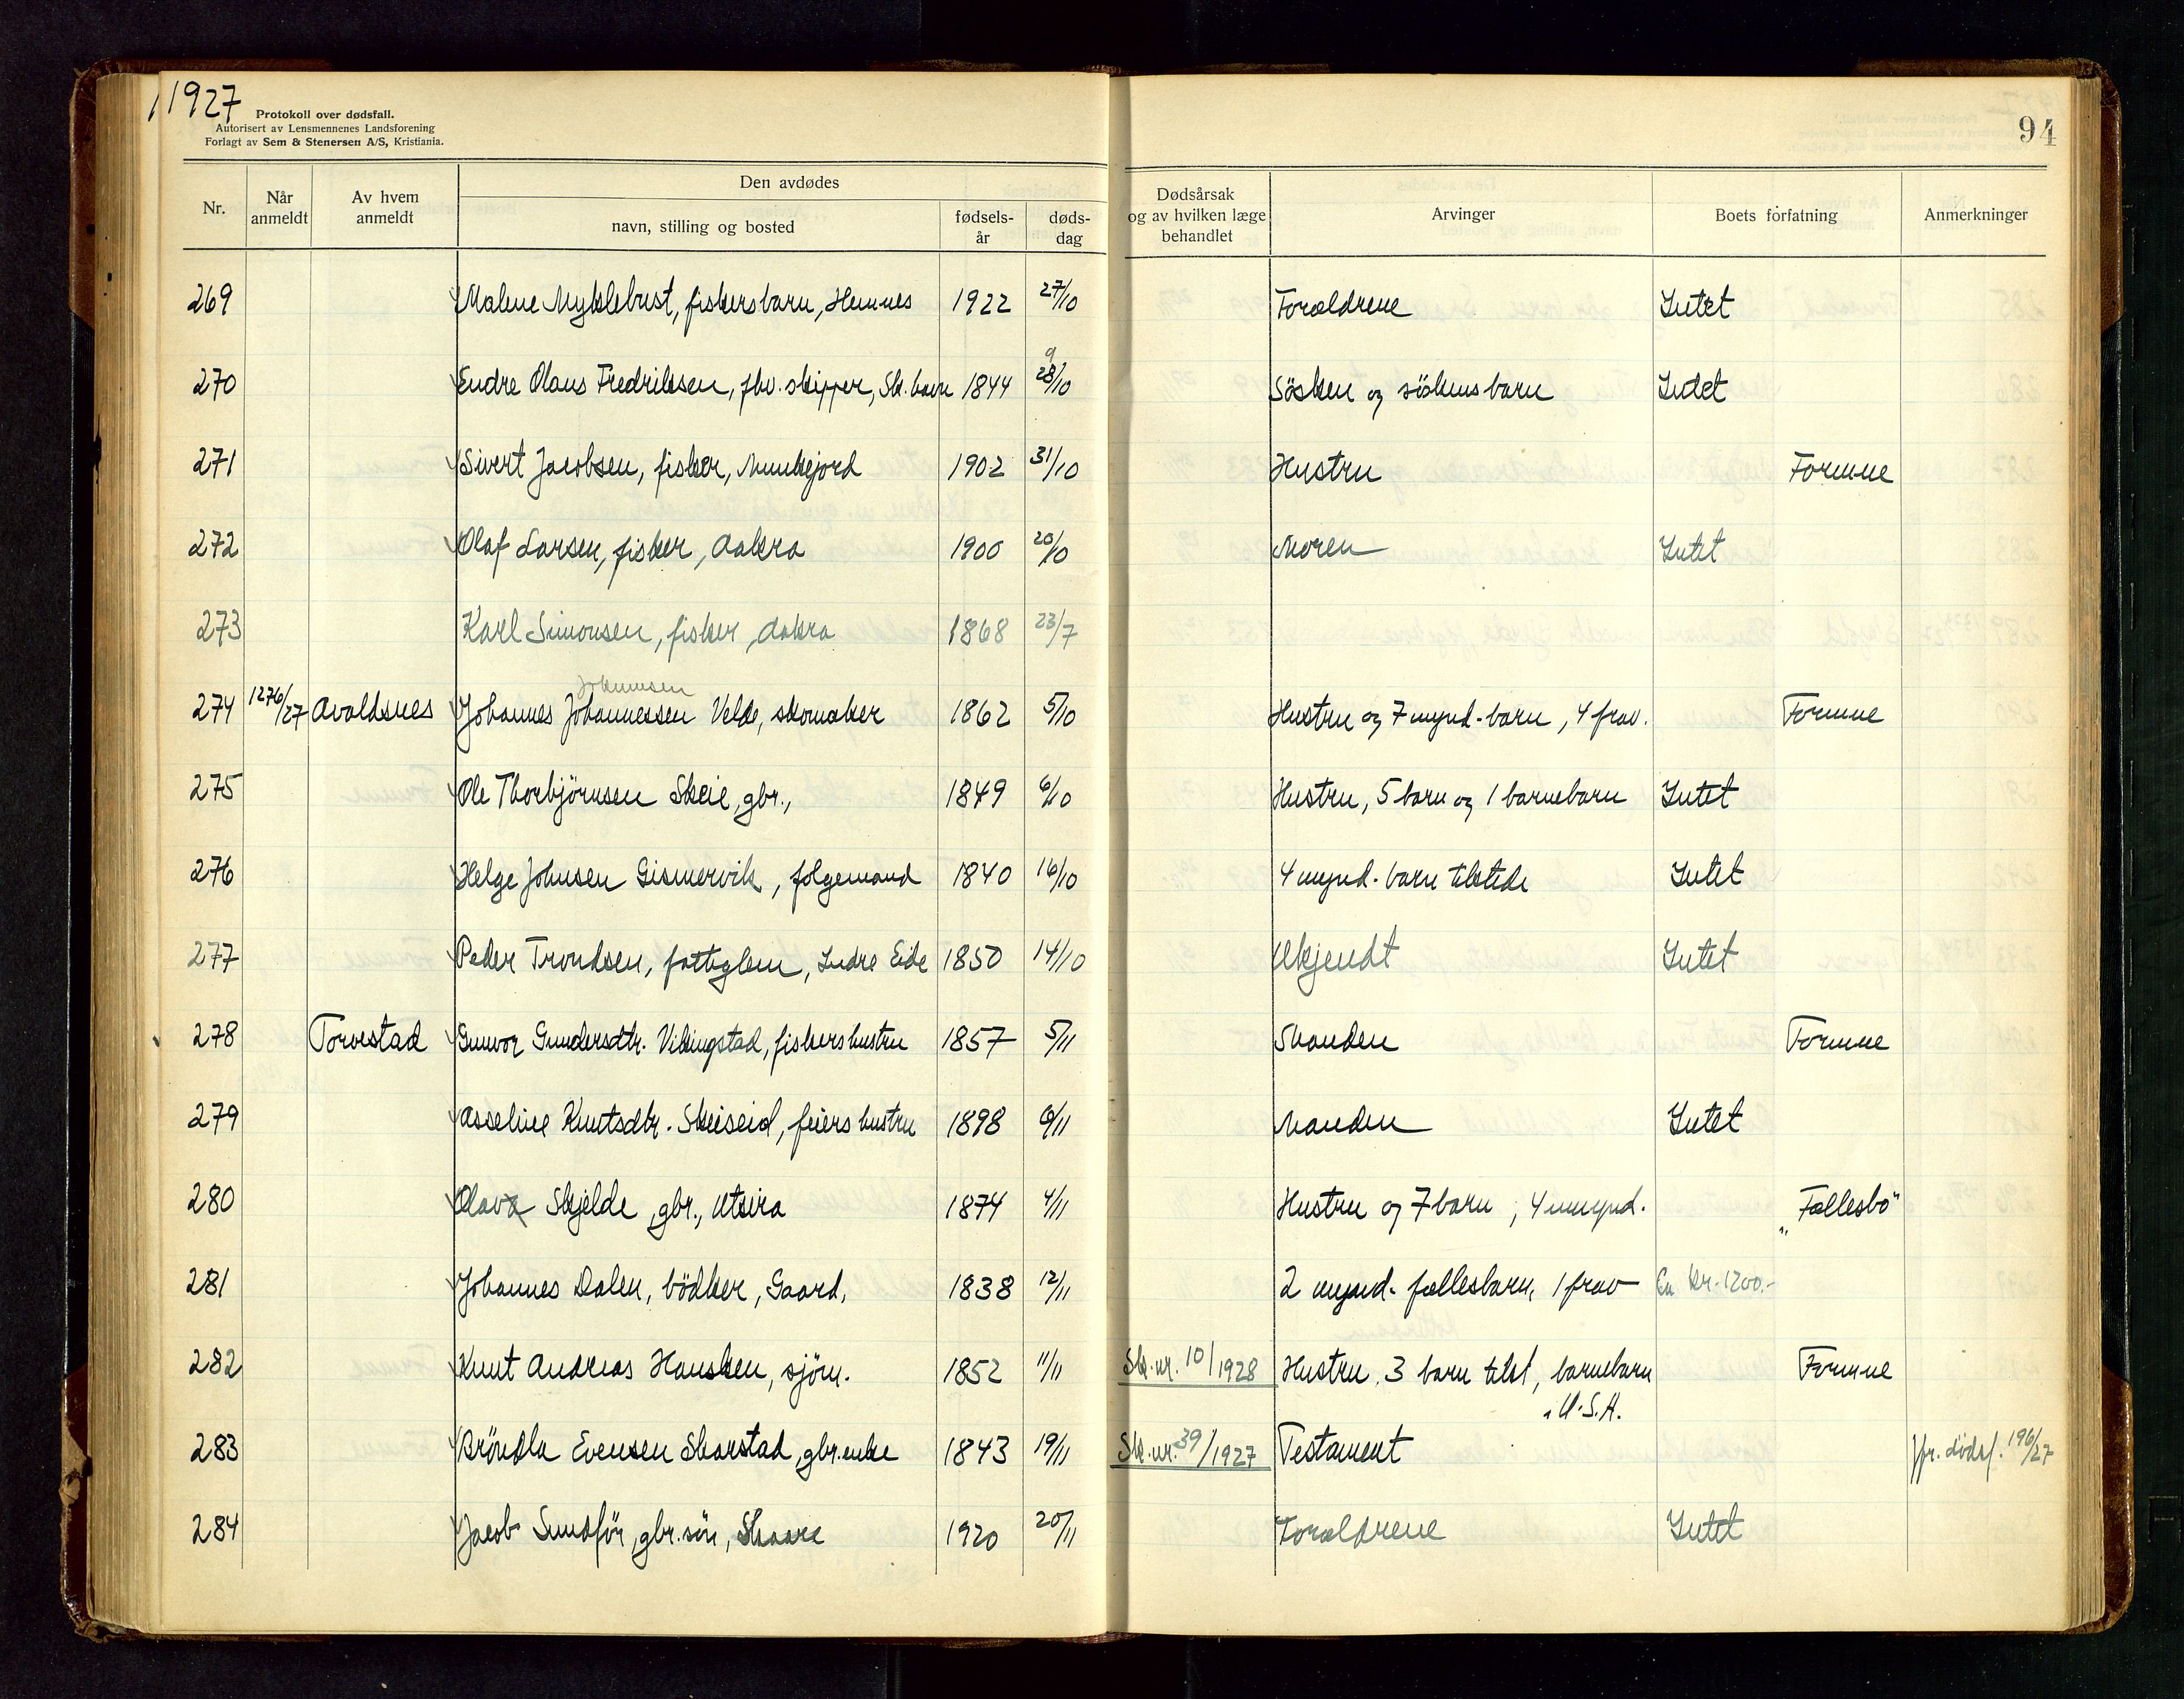 1927
Protokoll over dødsfall.
Autorisert av Lensmennenes Landsforening
Forlagt av Sem & Stenersen A/S, Kristiania.
94
Nr. Når anmeldt Av hvem anmeldt Den avdødes navn, stilling og bosted fødsels-år døds-dag Dødsårsak og av hvilken læge behandlet Arvinger Boets forfatning Anmerkninger
269 Malene Myklebust, fiskersbarn, Hemnes 1922 27/10 Forældrene Intet
270 Endre Olaus Fredriksen, fhv. skipper, Sk.havn 1844 28/10 Søsken og søskensbarn Intet
271 Sivert Jacobsen, fisker, Munkejord 1902 31/10 Hustru Formue
272 Olaf Larsen, fisker, Aakra 1900 20/10 Moren Intet
273 Karl Simonsen, fisker, Aakra 1868 23/7
274 1276/27 Avaldsnes Johannes Johannessen Velde, skomaker 1862 5/10 Hustru og 7 mynd. barn, 4 frav. Formue
275 Ole Thorbjörnsen Skeie, gbr., 1849 6/10 Hustru, 5 barn og 1 barnebarn Intet
276 Helge Johnsen Gismervik, følgemand 1840 16/10 4 mynd. barn tilstede Intet
277 Peder Trondsen, fattiglem, Indre Eide 1850 14/10 Ukjendt Intet
278 Torvestad Gunvor Gundersdtr. Vikingstad, fiskershustru 1857 5/11 Manden Formue
279 Asseline Knutsdtr. Skeiseid, feiers hustru 1898 6/11 Manden Intet
280 Olava Skjelde, gbr., Utsira 1874 4/11 Hustru og 7 barn, 4 umynd. "Fællesbo"
281 Johannes Dalen, bødker, Gaard, 1838 12/11 2 mynd. fællesbarn, 1 frav Ca kr. 1200.-
282 Knut Andreas Hansken, sjöm. 1852 11/11 Sk.nr. 10/1928 Hustru, 3 barn tilst, barnebarn
i U.S.A.
283 Bröndla Evensen Skarstad, gbr.enke 1843 19/11 Sk.nr. 39/1927 Testament Jfr. dødsf. 196/27
284 Jacob Sundför, gbr. søn, Skaare 1920 20/11 Forældrene Intet